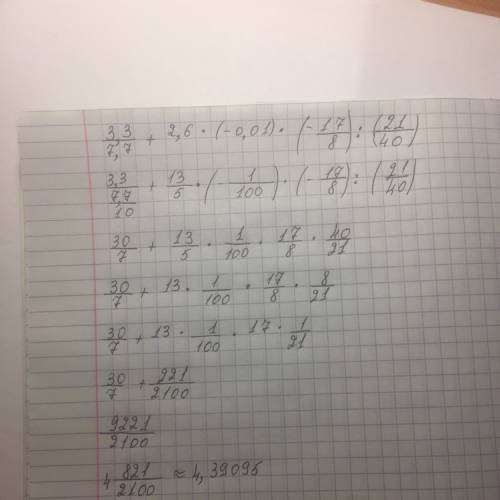 3,3/7,7 + 2,6 · (-0,01) · (-17/8) : (21/40)
3,3/(7,7/10) + 13/5 · (-1/100) · (-17/8) : (21/40)
30/7 + 13/5 · 1/100 · 17/8 · 40/21
30/7 + 13 · 1/100 · 17/8 · 8/21
30/7 + 13 · 1/100 · 17 · 1/21
30/7 + 221/2100
9221/2100
4 821/2100 ≈ 4,39095